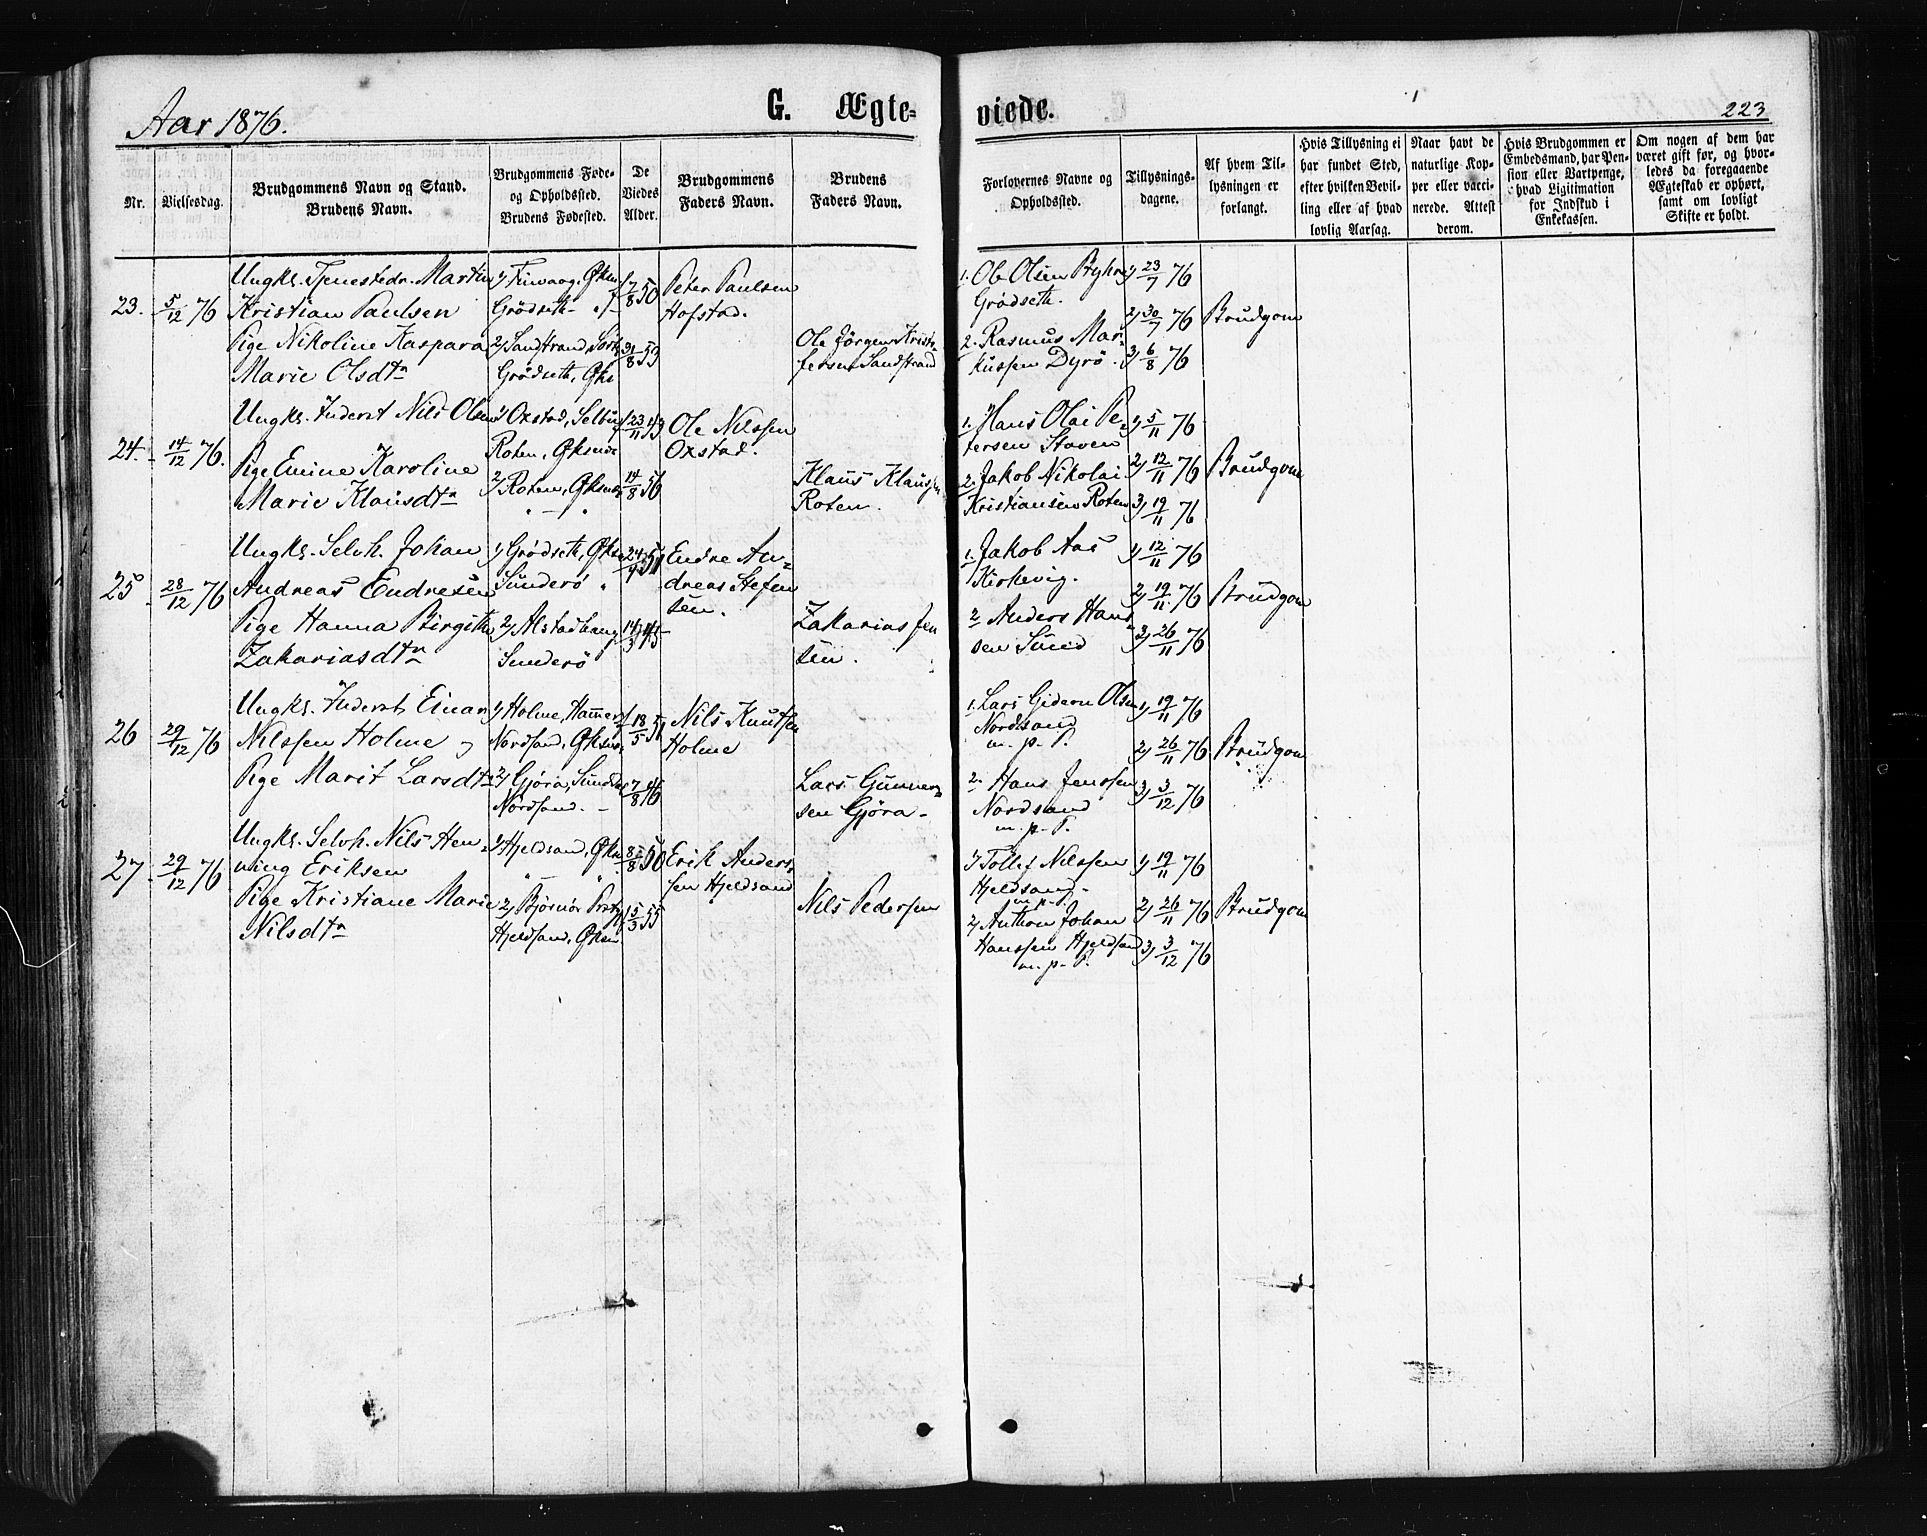 Aar 1876.
G. Ægte-
viede.
223
Nr.
Vielsesdag.
Brudgommens Navn og Stand.
Brudens Navn.
Brudgommens Føde-
og Opholdssted.
Brudens Fødested.
De
Viedes
Alder.
Brudgommens
Faders Navn.
Brudens
Faders Navn.
Forlovernes Navne og
Opholdssted.
Tillysnings-
dagene.
Af hvem Til-
lysningen er
forlangt.
Hvis Tillysning ei
har fundet Sted,
efter hvilken Bevil-
ling eller af hvad
lovlig Aarsag.
Naar havt de
naturlige Kop-
per eller vacci-
nerede. Attest
derom.
Hvis Brudgommen er
Embedsmand, har Pen-
sion eller Vartpenge,
hvad Ligitimation
for Indskud i
Enkekassen.
Om nogen af dem har
været gift før, og hvor-
ledes da foregaaende
Ægteskab er ophørt,
samt om lovligt
Skifte er holdt.
23.
5/12 76
Ungkl. Tjenestedr. Martin
Kristian Paulsen
Pige Nikoline Kaspara
Marie Olsdtr
Grödseth
2) Sandstrand, Sort
Grödseth, Øksn
7/8 50
31/8 53
Peter Paulsen
Hofstad.
Ole Jörgen Krist-
fersen Sandstrand
1. Ole Olsen
Grödseth.
2. Rasmus Mar-
kussen Dyrö.
1) 23/7 76
2) 30/7 76
3) 6/8 76
Brudgom
24.
14/12 76.
Ungkl. Inderst Nils Olsen
Pige Emine Karoline
Marie Klausdtr
1) Oxstad, Selbu
Roten, Øksnes
2) Roten, Øksnes
23/11 43
14/8 56
Ole Nilssen
Oxstad.
Klaus Klaussen
Roten.
1. Hans Olai Pe-
tersen Staven
2. Jakob Nikolai
Kristiansen Roten
1) 5/11 76
2) 12/11 76
3) 19/11 76
Brudgom
25
28/12 76
Ungkl. Selvh. Johan
Andreas Endresen
Pige Hanna Birgitte
Zakariasdtr
1) Grödseth, Øksn
Sunderö
2) Alstadhaug
Sunderö
51
14/3 45
Endre An-
dreas Stefen
sen.
Zakarias Jen
sen.
1. Jakob Aas
Kirkevig.
2 Anders Han
sen Sund
1) 12/11 76
2) 19/11 76
3) 26/11 76
Brudgom
26
29/12 76
Ungkl. Inderst Einar
Nilssen Holme
Pige Marit Larsdtr
1) Holme, Hammer
Nordsand, Øksnes
2) Gjöra, Sunddal
Nordsand.
18/5 51
7/8 46
Nils Knutsen
Holme
Lars Gunner-
sen Gjöra
1. Lars Gideon Olsen
Nordsand
m. p. P.
2. Hans Jenssen
Nordsand
m. p. P.
1) 19/11 76
2) 26/11 76
3) 3/12 76
Brudgom
27.
29/12 76
Ungkl. Selvh. Nils Hen-
ning Eriksen
Pige Kristiane Marie
Nilsdtr
1) Hjeldsand, Øksn
2) Björnör
Hjeldsand, Øksn
8/8 50
5/3 55
Erik Anders-
sen Hjeldsand
Nils Pedersen
1) Tollef Nilssen
Hjeldsand
m. p. P.
2) Anthon Johan
Hanssen Hjeldsand
m. p. P.
1) 19/11 76
2) 26/11 76
3) 3/12 76
Brudgom